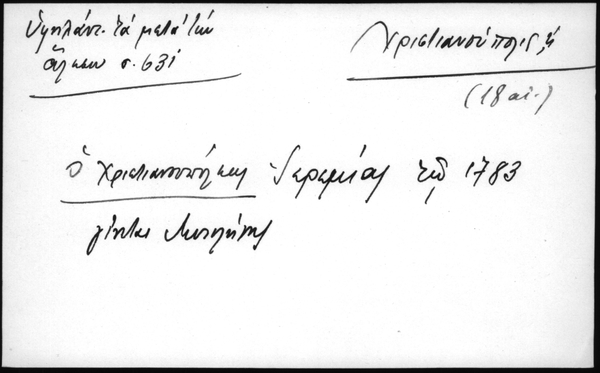 Ὑψηλάντ. τὰ μετὰ τὴν
ἅλωσιν σ. 631
Χριστιανούπολις, ἡ
(18 αἰ.)
ὁ Χριστιανουπόλεως Ἱερεμίας τῷ 1783
γίνεται Μυτιλήνης